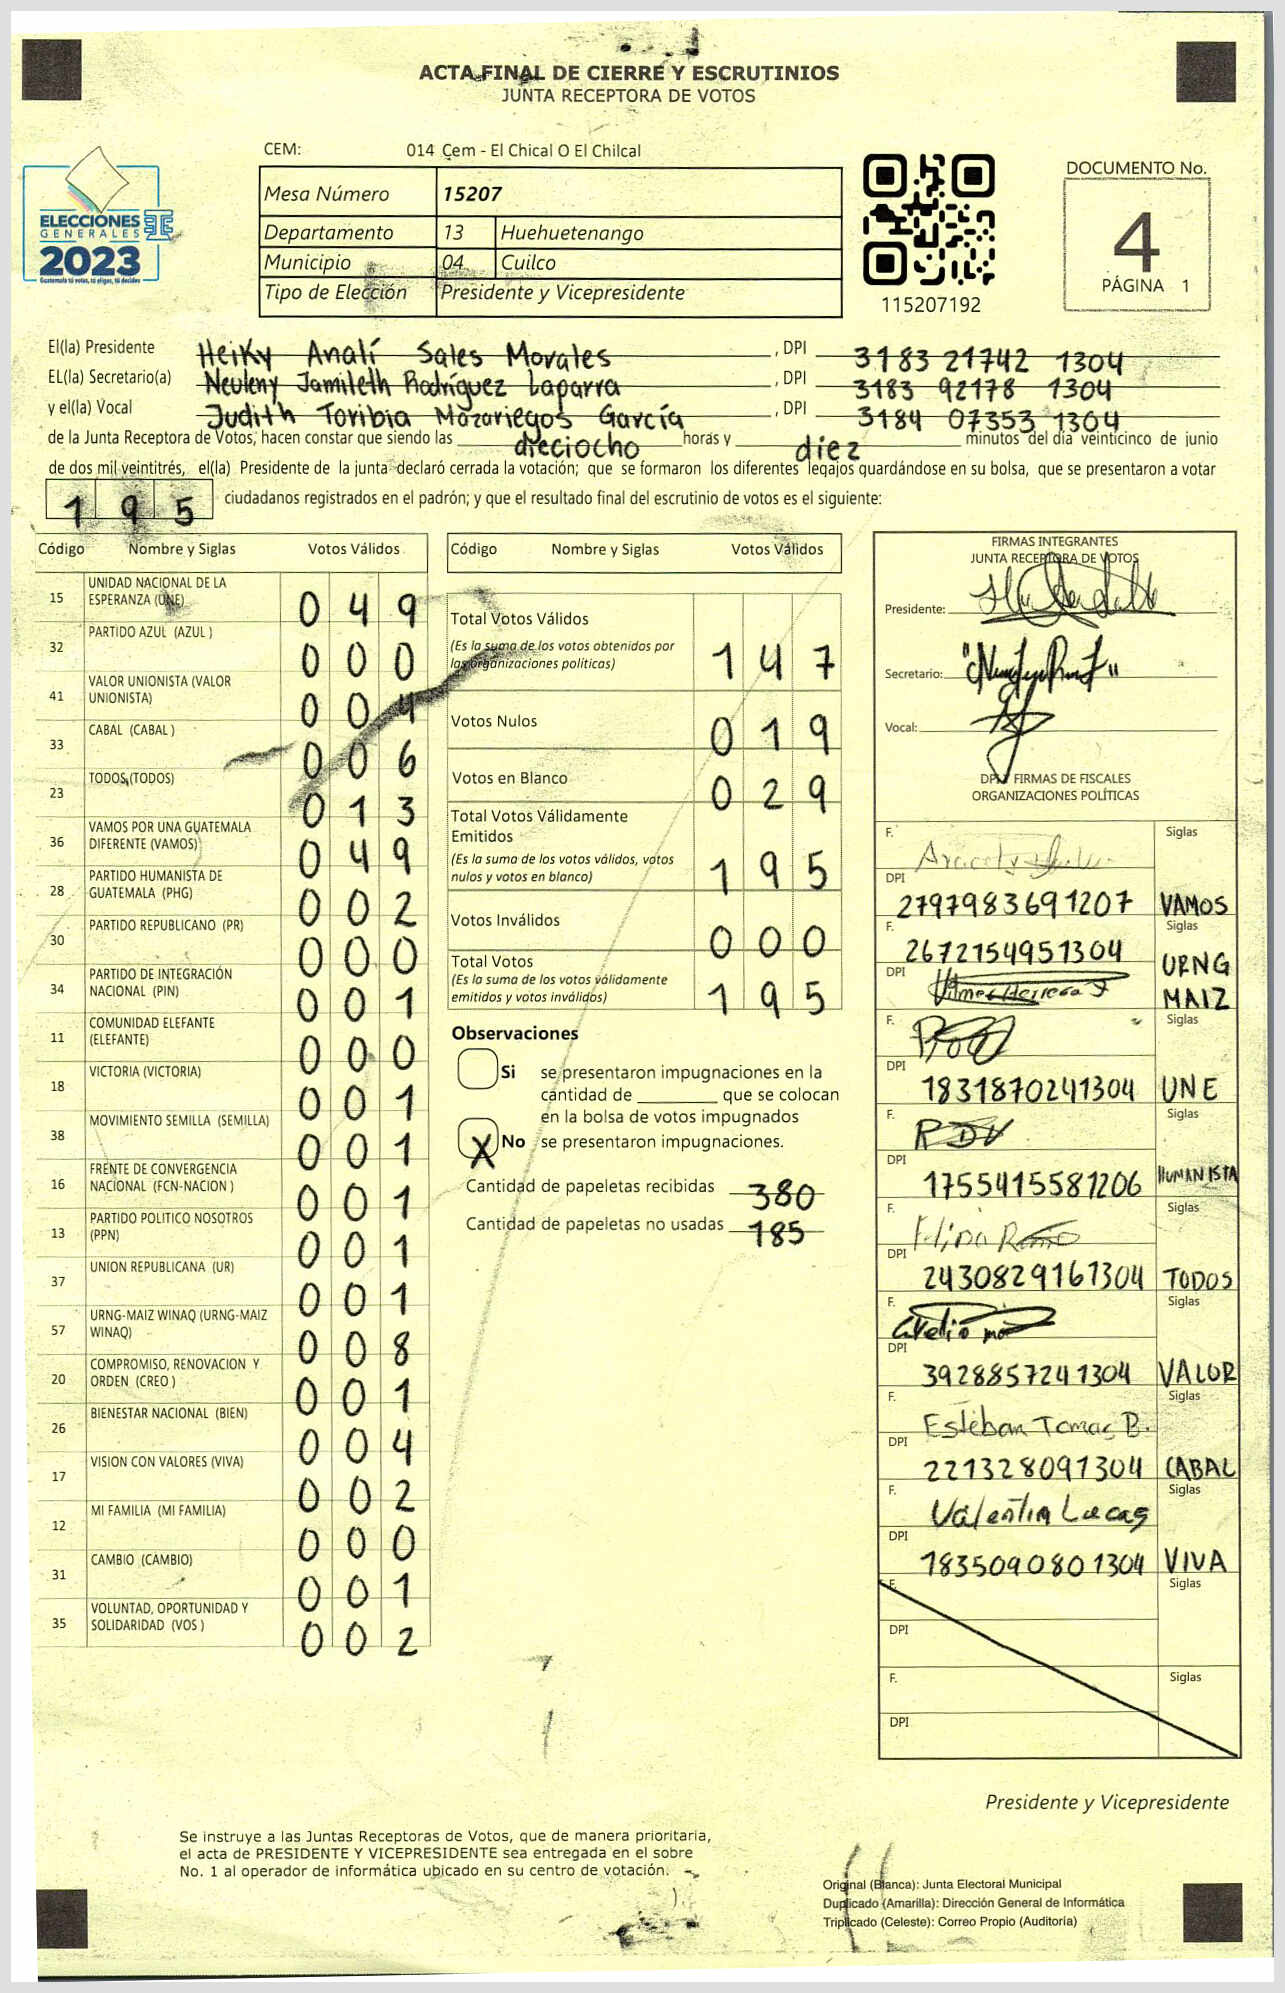 ACTA FINAL DE CIERRE Y ESCRUTINIOS
JUNTA RECEPTORA DE VOTOS
CEM: 014 Cem - El Chical O El Chilcal
Mesa Número 15207
Departamento 13 Huehuetenango
Municipio 04 Cuilco
Tipo de Elección Presidente y Vicepresidente
ELECCIONES
GENERALES
2023
Guatemala tú votas, tú eliges, tú decides
115207192
DOCUMENTO No.
4
PÁGINA 1
El(la) Presidente Heiky Analí Sales Morales, DPI 3183 21742 1304
EL(la) Secretario(a) Neuleny Jamileth Rodríguez Laparra, DPI 3183 92178 1304
y el(la) Vocal Judith Toribia Mazariegos García, DPI 3184 07353 1304
de la Junta Receptora de Votos, hacen constar que siendo las dieciocho horas y diez minutos del día veinticinco de junio
de dos mil veintitrés, el(la) Presidente de la junta declaró cerrada la votación; que se formaron los diferentes legajos quardándose en su bolsa, que se presentaron a votar
195 ciudadanos registrados en el padrón; y que el resultado final del escrutinio de votos es el siguiente:
Código Nombre y Siglas Votos Válidos
15 UNIDAD NACIONAL DE LA ESPERANZA (UNE) 049
32 PARTIDO AZUL (AZUL ) 000
41 VALOR UNIONISTA (VALOR UNIONISTA) 004
33 CABAL (CABAL ) 006
23 TODOS (TODOS) 013
36 VAMOS POR UNA GUATEMALA DIFERENTE (VAMOS) 049
28 PARTIDO HUMANISTA DE GUATEMALA (PHG) 002
30 PARTIDO REPUBLICANO (PR) 000
34 PARTIDO DE INTEGRACIÓN NACIONAL (PIN) 001
11 COMUNIDAD ELEFANTE (ELEFANTE) 000
18 VICTORIA (VICTORIA) 001
38 MOVIMIENTO SEMILLA (SEMILLA) 001
16 FRENTE DE CONVERGENCIA NACIONAL (FCN-NACION ) 001
13 PARTIDO POLITICO NOSOTROS (PPN) 001
37 UNION REPUBLICANA (UR) 001
57 URNG-MAIZ WINAQ (URNG-MAIZ WINAQ) 008
20 COMPROMISO, RENOVACION Y ORDEN (CREO ) 001
26 BIENESTAR NACIONAL (BIEN) 004
17 VISION CON VALORES (VIVA) 002
12 MI FAMILIA (MI FAMILIA) 000
31 CAMBIO (CAMBIO) 001
35 VOLUNTAD, OPORTUNIDAD Y SOLIDARIDAD (VOS ) 002
Código Nombre y Siglas Votos Válidos
Total Votos Válidos
(Es la suma de los votos obtenidos por
las organizaciones políticas) 147
Votos Nulos 019
Votos en Blanco 029
Total Votos Válidamente
Emitidos
(Es la suma de los votos válidos, votos
nulos y votos en blanco) 195
Votos Inválidos 000
Total Votos
(Es la suma de los votos válidamente
emitidos y votos inválidos) 195
Observaciones
Si se presentaron impugnaciones en la
cantidad de ________ que se colocan
en la bolsa de votos impugnados
X No se presentaron impugnaciones.
Cantidad de papeletas recibidas 380
Cantidad de papeletas no usadas 185
FIRMAS INTEGRANTES
JUNTA RECEPTORA DE VOTOS
Presidente:
Secretario:
Vocal:
DPI Y FIRMAS DE FISCALES
ORGANIZACIONES POLÍTICAS
F. Siglas
DPI 2797983691207 VAMOS
F. 2672154951304 Siglas
DPI URNG MAIZ
F. Siglas
DPI 1831870241304 UNE
F. RDV Siglas
DPI 1755415581206 HUMANISTA
F. Siglas
DPI 2430829161304 TODOS
F. Siglas
DPI 3928857241304 VALOR
F. Esteban Tomas B. Siglas
DPI 221328091304 CABAL
F. Valentin Lucas Siglas
DPI 1835090801304 VIVA
F. Siglas
DPI
F. Siglas
DPI
Presidente y Vicepresidente
Se instruye a las Juntas Receptoras de Votos, que de manera prioritaria,
el acta de PRESIDENTE Y VICEPRESIDENTE sea entregada en el sobre
No. 1 al operador de informática ubicado en su centro de votación.
Original (Blanca): Junta Electoral Municipal
Duplicado (Amarilla): Dirección General de Informática
Triplicado (Celeste): Correo Propio (Auditoría)